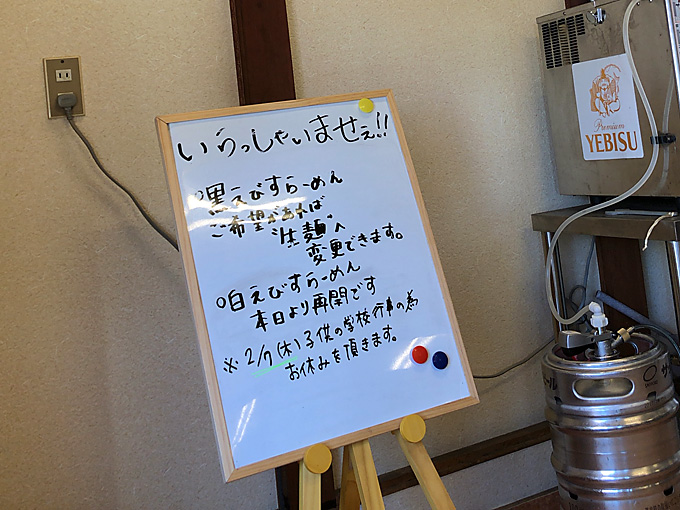 いらっしゃいませぇ!!
○黒えびすらーめん
ご希望があれば
"生麺"へ
変更できます。
○白えびすらーめん
本日より再開です
※ 2/7(木)子供の学校行事の為
お休みを頂きます。
Premium
YEBISU